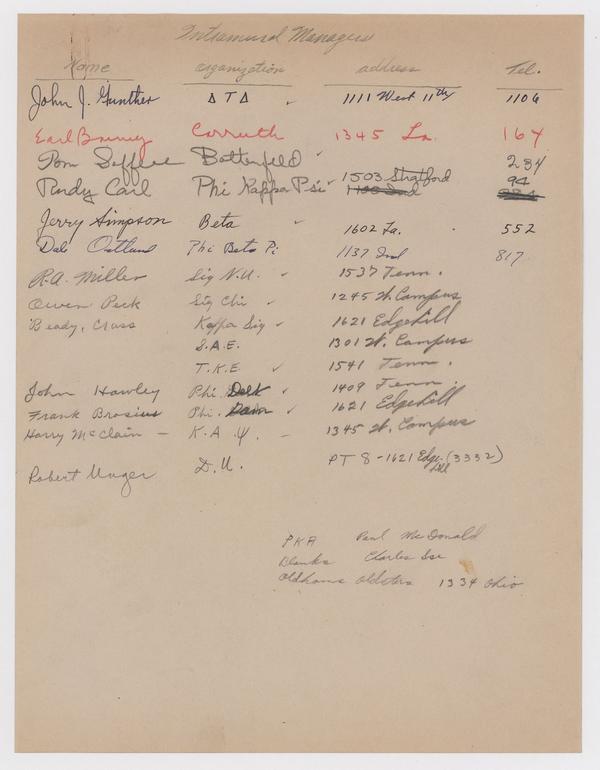 Intramural Managers
Name organization address Tel.
John J. Gunther Δ Τ Δ ✓ 1111 West 11th 1106
Earl Carruth 1345 La. 164
Tom Battenfeld ✓ 234
Rudy Carl Phi Kappa Psi ✓ 1503 Stratford 94
Jerry Simpson Beta ✓ 1602 La. 552
Dale Phi Beta Pi 1137 Ind 817
R.A. Miller Sig N.U. ✓ 1537 Tenn.
Owen Peck Sig Chi ✓ 1245 W. Campus
Beady, Class Kappa Sig ✓ 1621 Edgehill
S.A.E. 1301 W. Campus
T.K.E ✓ 1541 Tenn.
John Hawley Phi. Delt ✓ 1409 Tenn.
Frank Brosius Phi. Gam ✓ 1621 Edgehill
Harry McClain — K.A.Ψ. — 1345 W. Campus
Robert Unger D.U. PT 8-1621 Edge-(3332)
hill
PKA Paul McDonald
Blanks Charles
Oldhams Oldsters 1334 Ohio